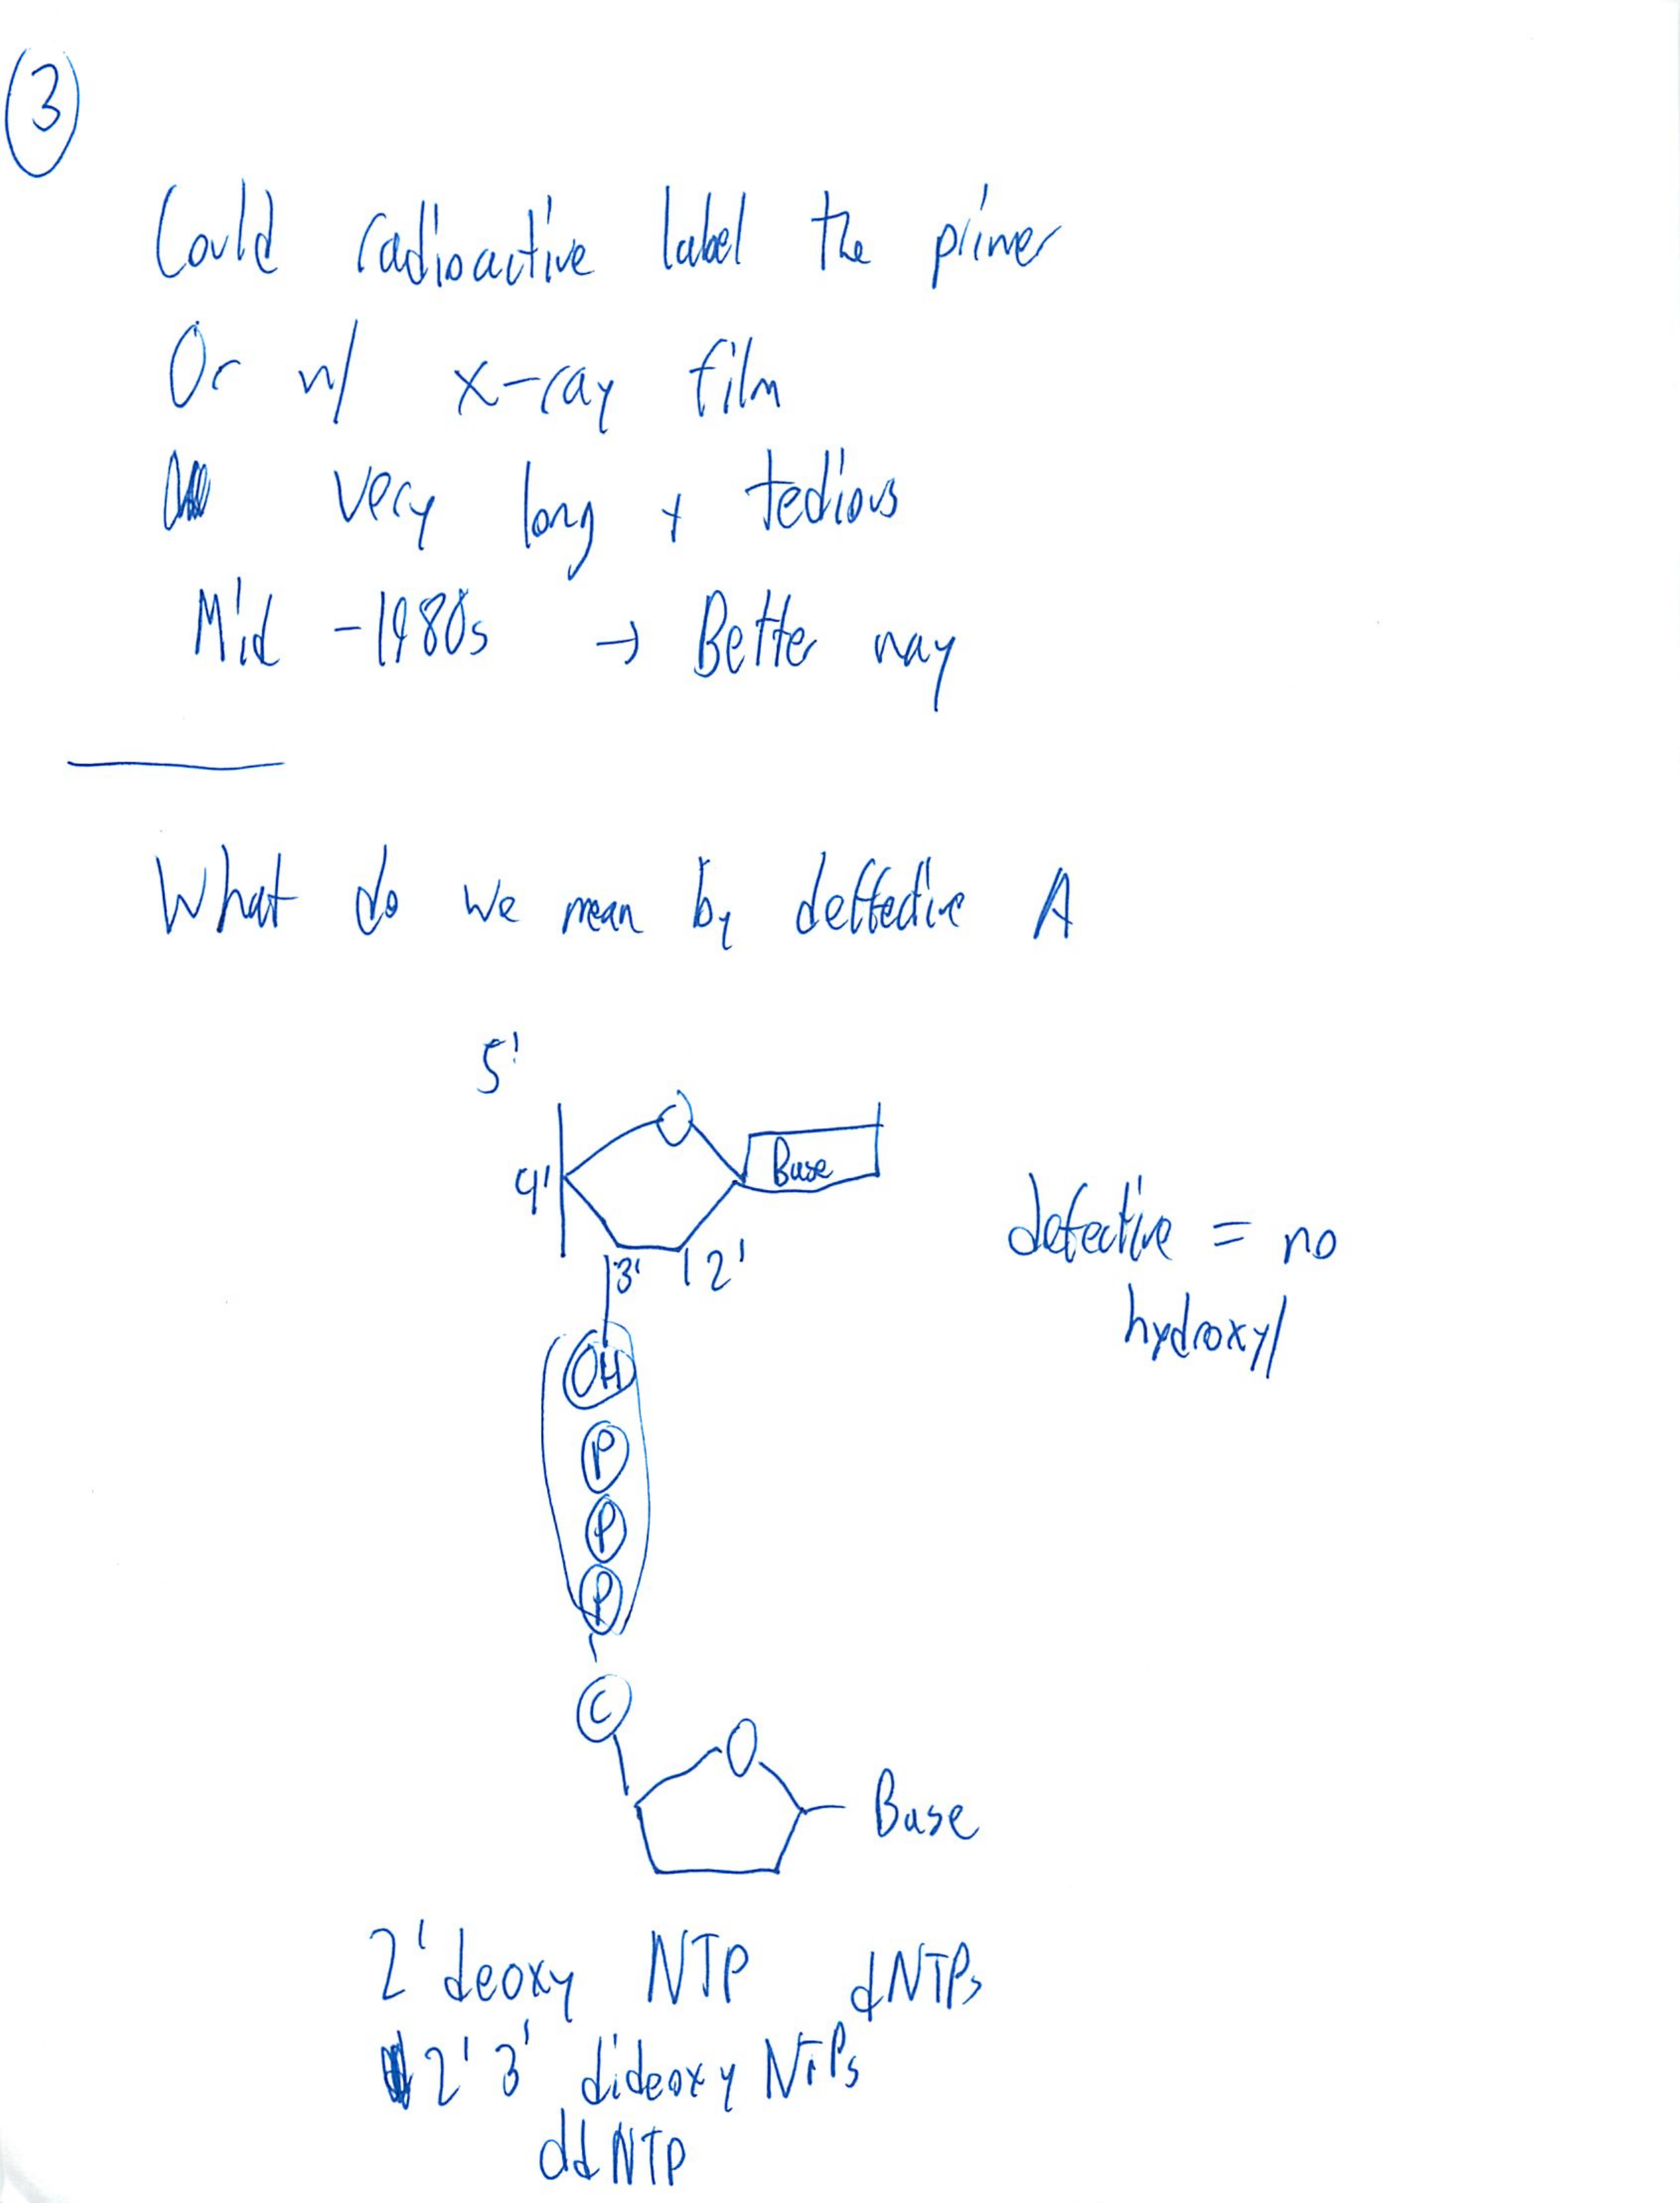 3
Could radioactive label the primer
Or w/ x-ray film
very long + tedious
Mid -1980s → Better way
What do we mean by deffective A
5'
O
Base
4'
3' 2'
defective = no
hydroxyl
OH
P
P
P
C
O
Base
2' deoxy NTP dNTPs
2' 3' dideoxy NTPs
ddNTP